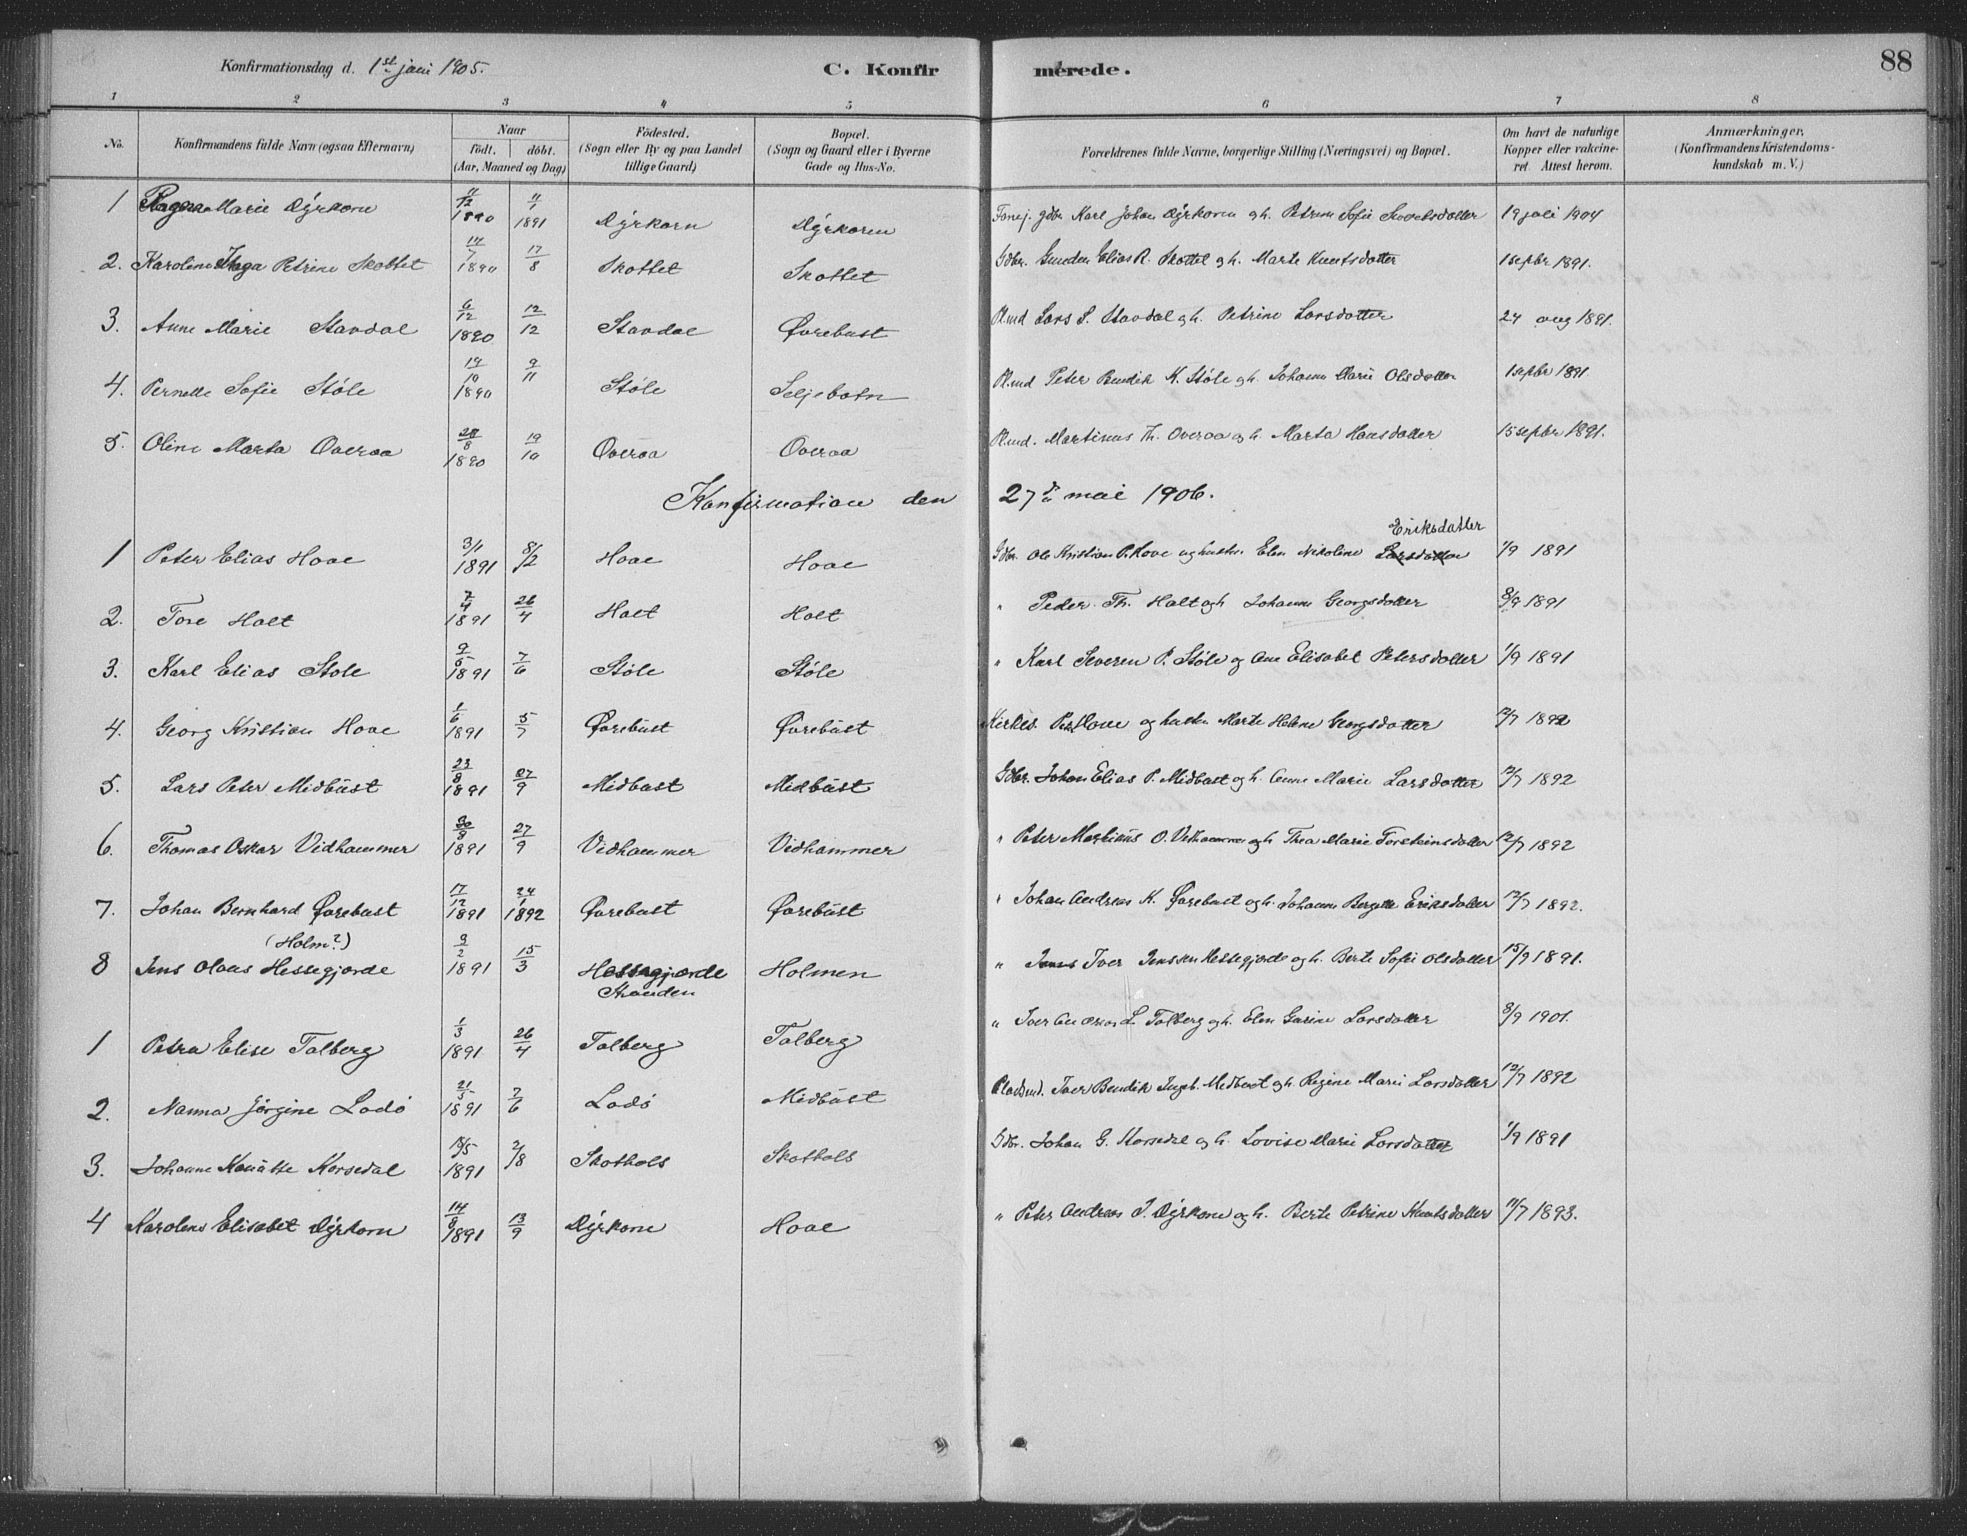 Konfirmationsdag d. 1st juni 1905. C. Konfirmerede. 88
1 2 3 4 5 6 7 8
No. Konfirmandens fulde Navn (ogsaa Efternavn) Naar født. døbt. (Aar, Maaned og Dag) Födested. (Sogn eller By og paa Landet tillige Gaard) Bopæl. (Sogn og Gaard eller i Byerne Gade og Hus-No. Forældrenes fulde Navne, borgerlige Stilling (Næringsvei) og Bopæl. Om havt de naturlige Kopper eller vakcineret. Attest herom. Anmærkninger. (Konfirmandens Kristendomskundskab m. V.)
1 Ragna Marie Dÿrkorn 11/12 1890 11/1 1891 Dÿrkorn Dÿrkorn gdbr. Karl Johan Dÿrkorn og h. Petrine Sofie 19 juli 1904
2. Karoline Inga Petrine Skottet 14/7 1890 17/8 Skottet Skottet Gdbr. Elias R. Skottet og h. Marte Knutsdatter 1 sepbr 1891.
3. Anne Marie Stavdal 6/12 1890 12/12 Stavdal Ørebust Pl.md Lars S. Stavdal og h. Petrine Larsdatter 24 aug 1891.
4. Pernelle Sofie Støle 19/10 1890 9/11 Støle Seljebotn Pl.md Peter Bendik K. Støle og h. Johanne Marie Olsdatter 1 sepbr 1891
5. Oline Marta Overaa 28/8 1890 19/10 Overaa Overaa Pl.md. Martinus Th. Overaa og h. Marta Hansdatter 15 sepbr 1891.
Konfirmation den 27de mai 1906.
Eriksdatter
1 Peter Elias Hove 3/1 1891 8/2 Hove Hove Gdbr. Ole Kristian P. Hove og hustr. Elen Nikoline Larsdatter 1/9 1891
2. Tore Holt 7/4 1891 26/4 Holt Holt " Peder Th. Holt og h Johanne Georgsdatter 8/9 1891
3. Karl Elias Støle 9/5 1891 7/6 Støle Støle " Karl Severen P. Støle og Ane Elisabet Petersdatter 1/9 1891
4. Georg Kristian Hove 1/6 1891 5/7 Ørebust Ørebust Kirkes. Hove og hustr. Marte Helene Georgsdatter 12/7 1892
5. Lars Peter Midbüst 23/8 1891 27/9 Midbust Midbüst Gdbr. Johan Elias P. Midbust og h. Anne Marie Larsdatter 12/7 1892
6. Thomas Oskar Vidhammer 30/8 1891 27/9 Vidhammer Vidhammer " Peter Martinus O. Vidhammer og h. Thea Marie Torsteinsdatter 12/7 1892
7. Johan Bernhard Ørebust 17/12 1891 24/1 1892 Ørebust Ørebüst " Johan Andreas K. Ørebust og h. Johanne Eriksdatter 12/7 1892.
(Holm?)
8 Jens Olaus Hessegjerde 9/2 1891 15/3 Hessegjerde Holmen " Iver Jenssen Hessegjerde og h. Berte Sofie Olsdatter 15/9 1891.
Stranden
1 Petra Elise Talberg 1/3 1891 26/4 Talberg Talberg " Iver Andreas L. Talberg og h. Elen Gurine Larsdatter 8/9 1901.
2. Nanna Jørgine Lodø 21/5 1891 7/6 Lodø Midbüst Pladsmd. Iver Bendik Midbust og h. Regine Marie Larsdatter 12/7 1892
3. Johanne Korsedal 15/5 1891 2/8 Skothols Skothols Gdbr. Johan G. Korsedal og h. Lovise Marie Larsdatter 1/9 1891
4 Karolene Elisabet Dÿrkorn 14/8 1891 13/9 Dÿrkorn Hove " Peter Andreas J. Dÿrkorn og h. Berte Petrine Knutsdatter 11/7 1893.